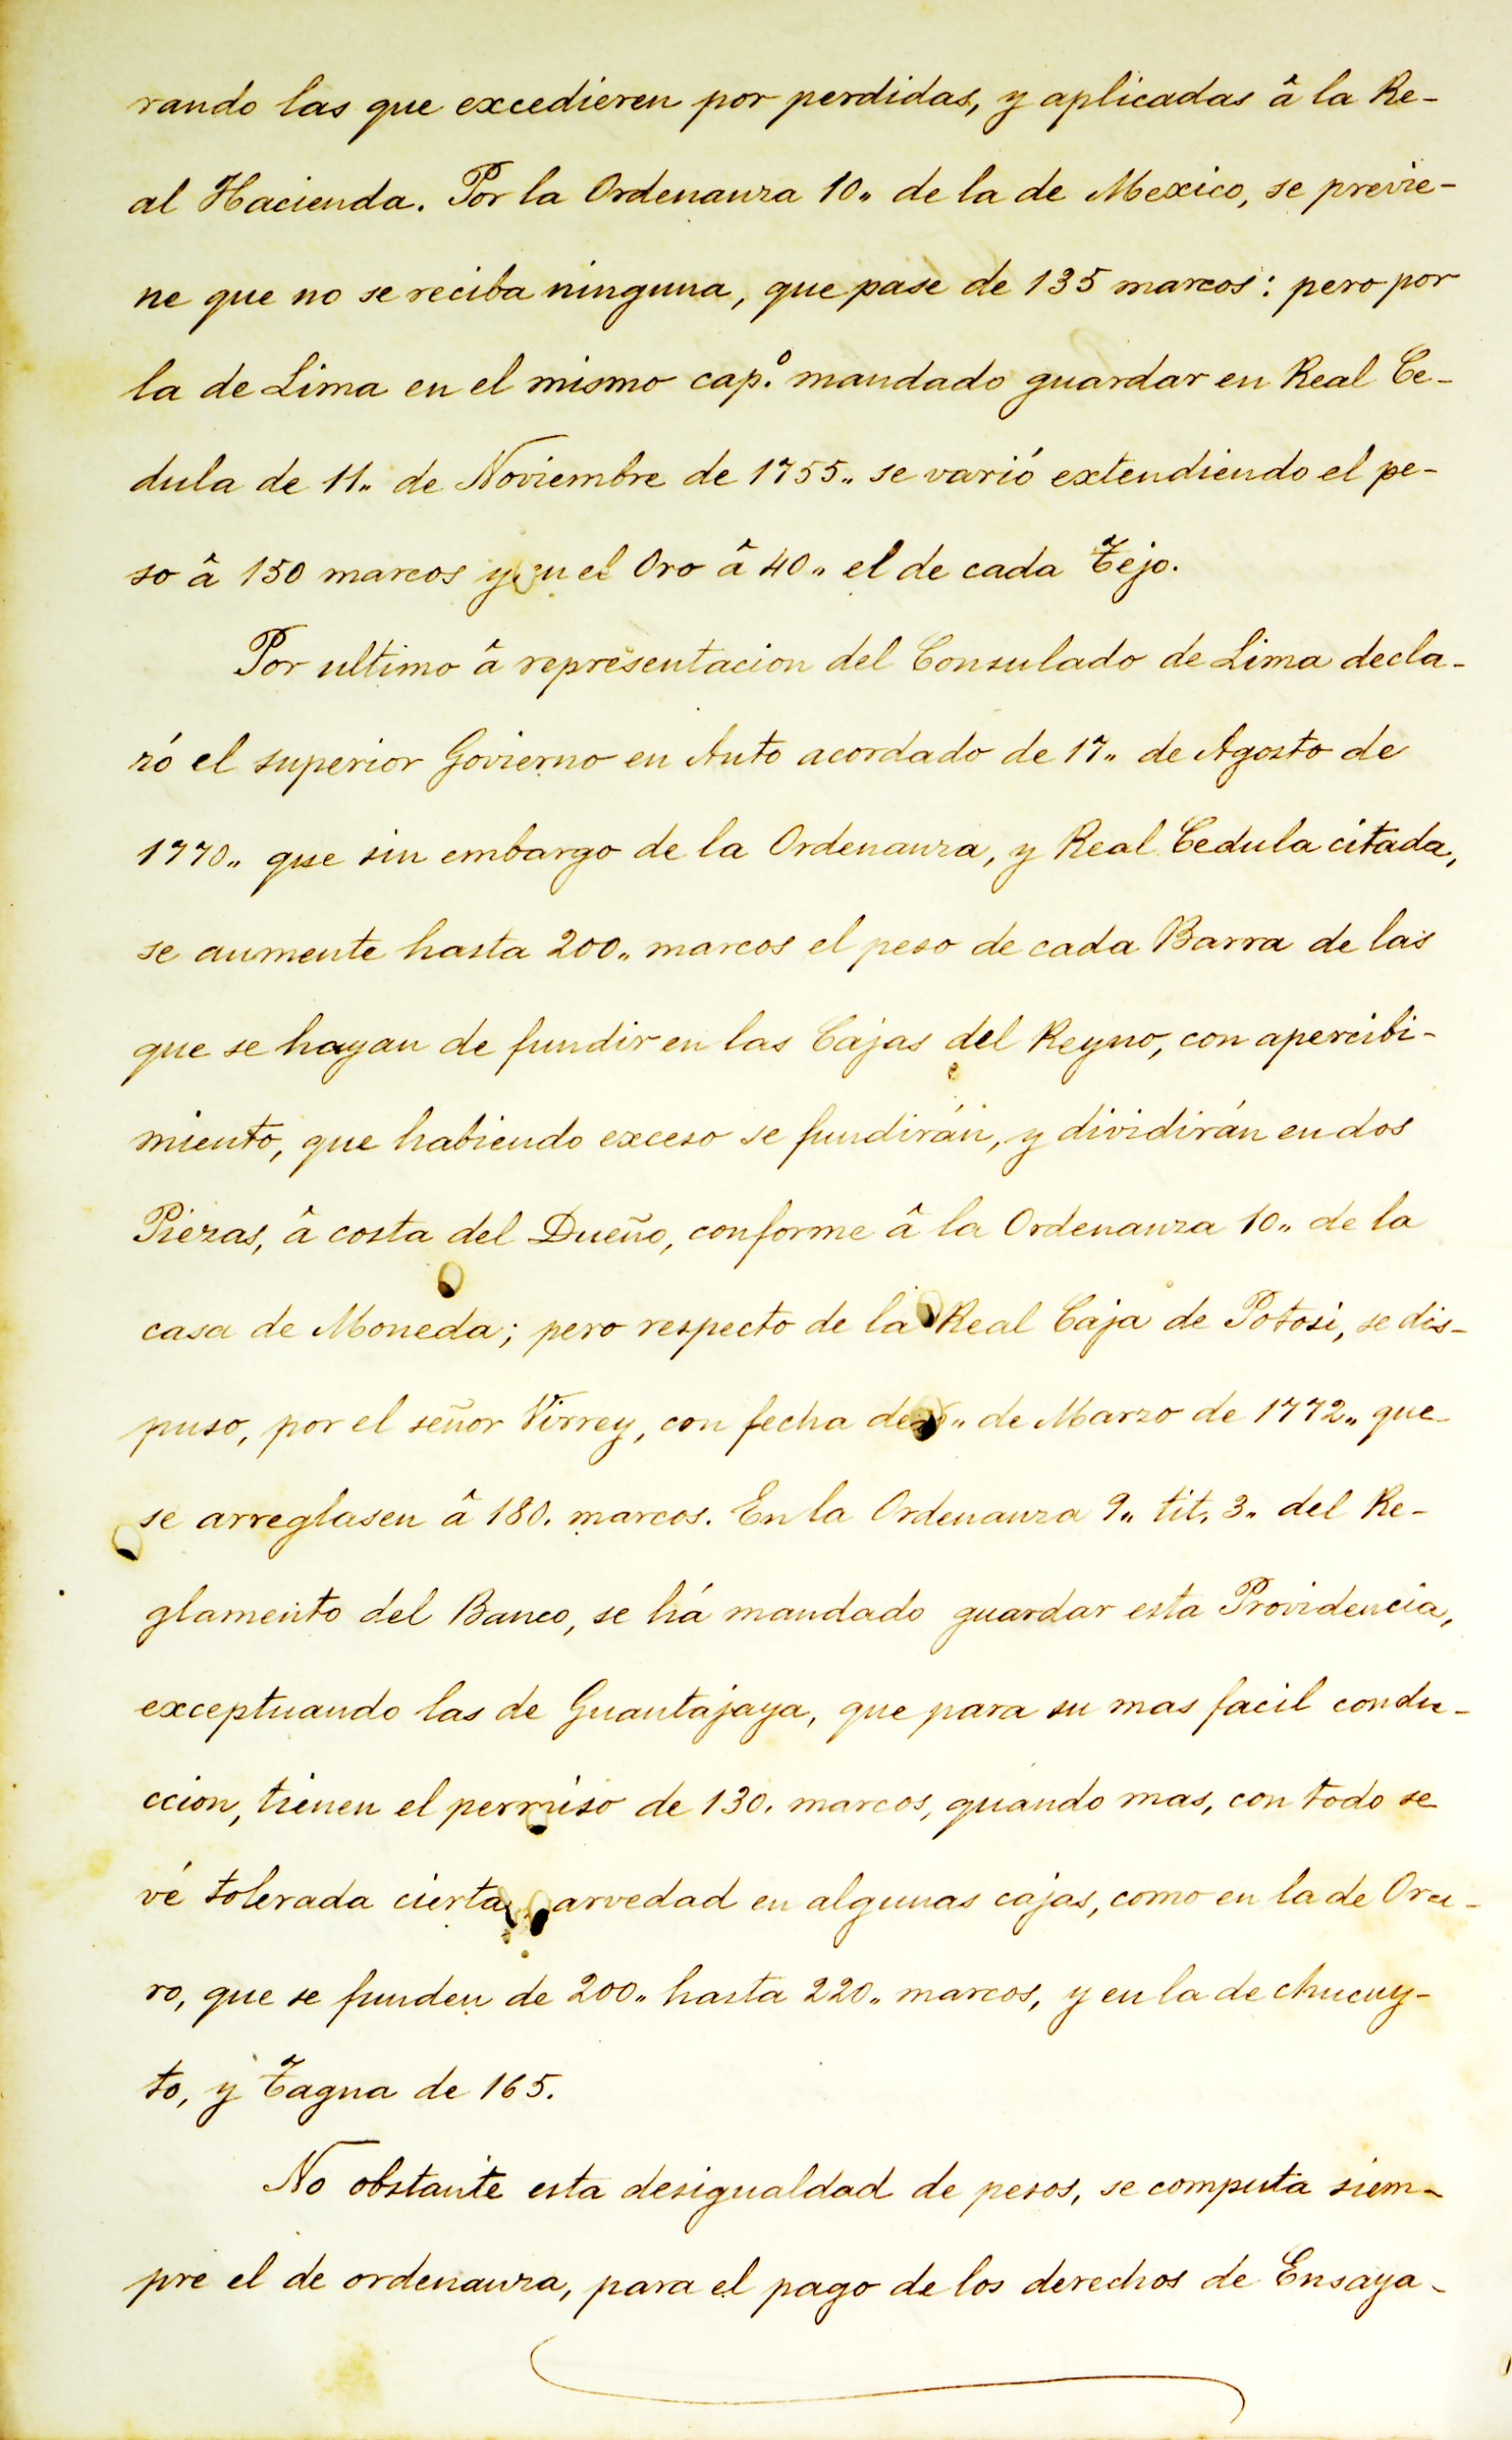 rando las que excedieren por perdidas, y aplicadas â la Re-
al Hacienda. Por la Ordenanza 10„ de la de Mexico, se previe-
ne que no se reciba ninguna, que pase de 135 marcos: pero por
la de Lima en el mismo cap.º mandado guardar en Real Ce-
dula de 11„ de Noviembre de 1755„ se varió extendiendo el pe-
so â 150 marcos y en el Oro â 40„ el de cada Tejo.
Por ultimo â representacion del Consulado de Lima decla-
ró el superior Govierno en Auto acordado de 17„ de Agosto de
1770„ que sin embargo de la Ordenanza, y Real Cedula citada,
se aumente hasta 200„ marcos el peso de cada Barra de las
que se hayan de fundir en las Cajas del Reyno, con apercibi-
miento, que habiendo exceso se fundirán, y dividirán en dos
Piezas, â costa del Dueño, conforme â la Ordenanza 10„ de la
casa de Moneda; pero respecto de la Real Caja de Potosi, se dis-
puso, por el señor Virrey, con fecha de „ de Marzo de 1772„ que
se arreglasen â 180. marcos. En la Ordenanza 9„ tit. 3„ del Re-
glamento del Banco, se há mandado guardar esta Providencia,
exceptuando las de Guantajaya, que para su mas facil condu-
ccion, tienen el permiso de 130. marcos, quando mas, con todo se
vé tolerada cierta arvedad en algunas cajas, como en la de Oru-
ro, que se funden de 200„ hasta 220„ marcos, y en la de chucuy-
to, y Tagna de 165.
No obstante esta desigualdad de pesos, se computa siem-
pre el de ordenanza, para el pago de los derechos de Ensaya-